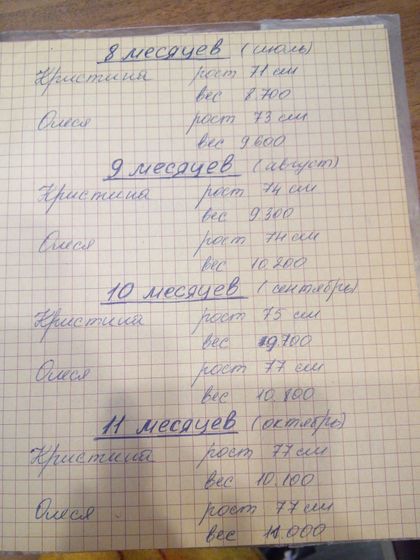 8 месяцев (июль)
Кристина рост 71 см
вес 8.700
Олеся рост 73 см
вес 9.600
9 месяцев (август)
Кристина рост 74 см
вес 9300
Олеся рост 74 см
вес 10.200
10 месяцев (сентябрь)
Кристина рост 75 см
вес 9700
Олеся рост 77 см
вес 10.800
11 месяцев (октябрь)
Кристина рост 77 см
вес 10.100
Олеся рост 77 см
вес 11.000